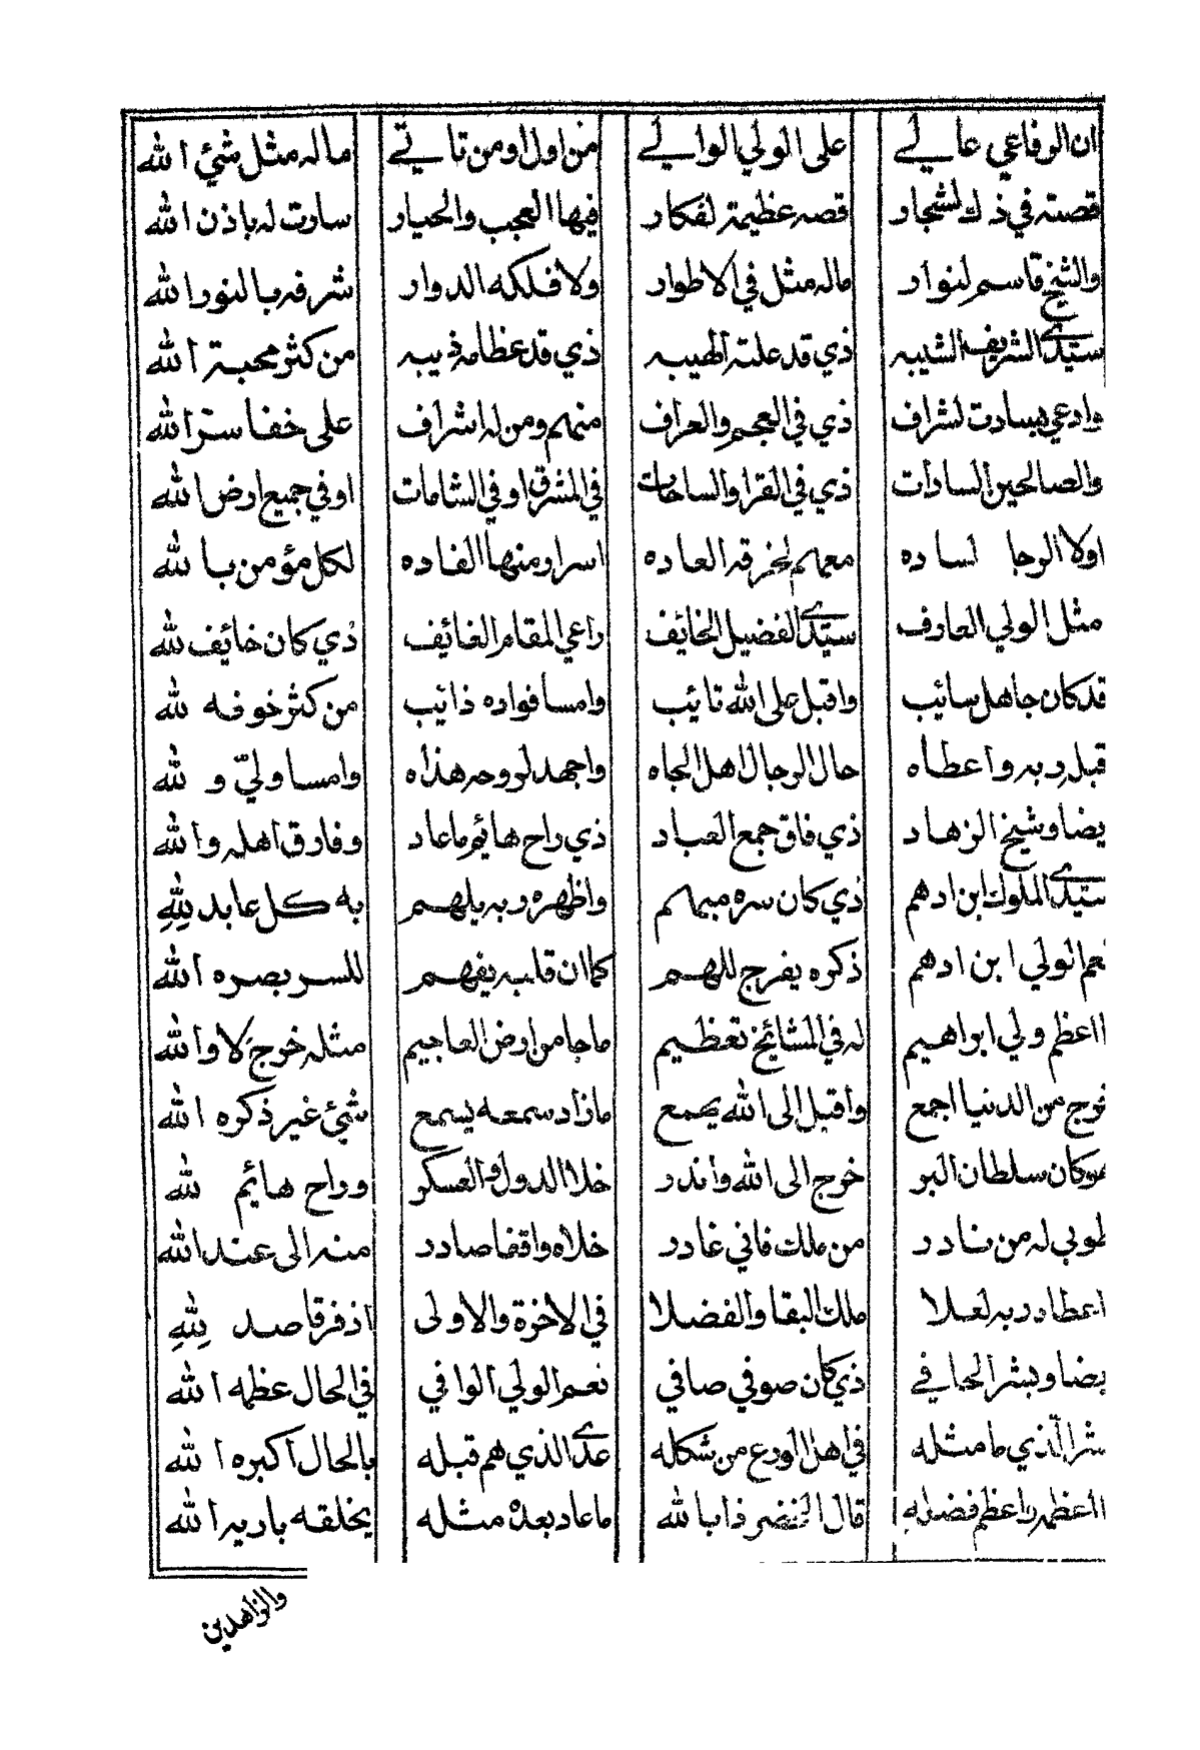 ان الرفاعي عالي على الولي الوالي من اول او من تاتي ماله مثل شيء الله
قصته في ذك لشجار قصه عظيمة لفكار فيها العجب والحيار سارت له باذن الله
والشيخ قاسم لنوار ماله مثل في الاطوار ولا فلكه الدوار شرفه بالنور الله
سيدي الشريف الشيبه ذي قد علته الهيبه ذي قد عظامه ذيبه من كثر محبة الله
وادعي بسادت لشراف ذي في العجم والعراف منهم ومن له اشراف على خفا سر الله
والصالحين السادات ذي في القرا والساحات في المشرق او في الشامات او في جميع ارض الله
اولا الرجا لساده معهم لخرقه العاده اسرار ومنها الفاده لكل مؤمن بالله
مثل الولي العارف سيدي الفضيل الخائف راعي المقام الغائف ذي كان خائف لله
قد كان جاهل سائب واقبل على الله تائب وامسا فواده ذائب من كثر خوفه لله
قبل ربه واعطاه حال الرجال اهل الجاه واجهد لروحه هذاه وامسا وليّ و لله
يضا وشيخ الزهاد ذي فاق جمع العباد ذي راح هايم ما عاد وفارق اهله والله
سيدي الملوك ابن ادهم ذي كان سره مبهم واظهره ربه يلهم به كل عابد لله
نعم الولي ابن ادهم ذكره يفرج للهم كما ان قلبه يفهم للسر بصره الله
ااعظم ولي ابراهيم له في المشائخ تعظيم ما جا من ارض العاجيم مثله خرج لا والله
خرج من الدنيا اجمع واقبل الى الله يهمع ما زاد سمعه يسمع شيء غير ذكره الله
هو كان سلطان البر خرج الى الله واندر خلا الدول والعسكر وراح هايم لله
طوبى له من نادر من ملك فاني غادر خلاه واقفا صادر منه الى عند الله
اعطاه ربه لعلا ملك البقا والفضلا في الاخرة والاولى اذ فر قاصد لله
يضا وبشر الحافي ذي كان صوفي صافي نعم الولي الوافي في الحال عظمه الله
بشر الذي ما مثله في اهل الورع من شكله عدى الذي هم قبله بالحال اكبره الله
ااعظم راعظم فضله قال الخضر ذا بالله ما عاد بعده مثله يخلقه باريه الله
والزاهدين